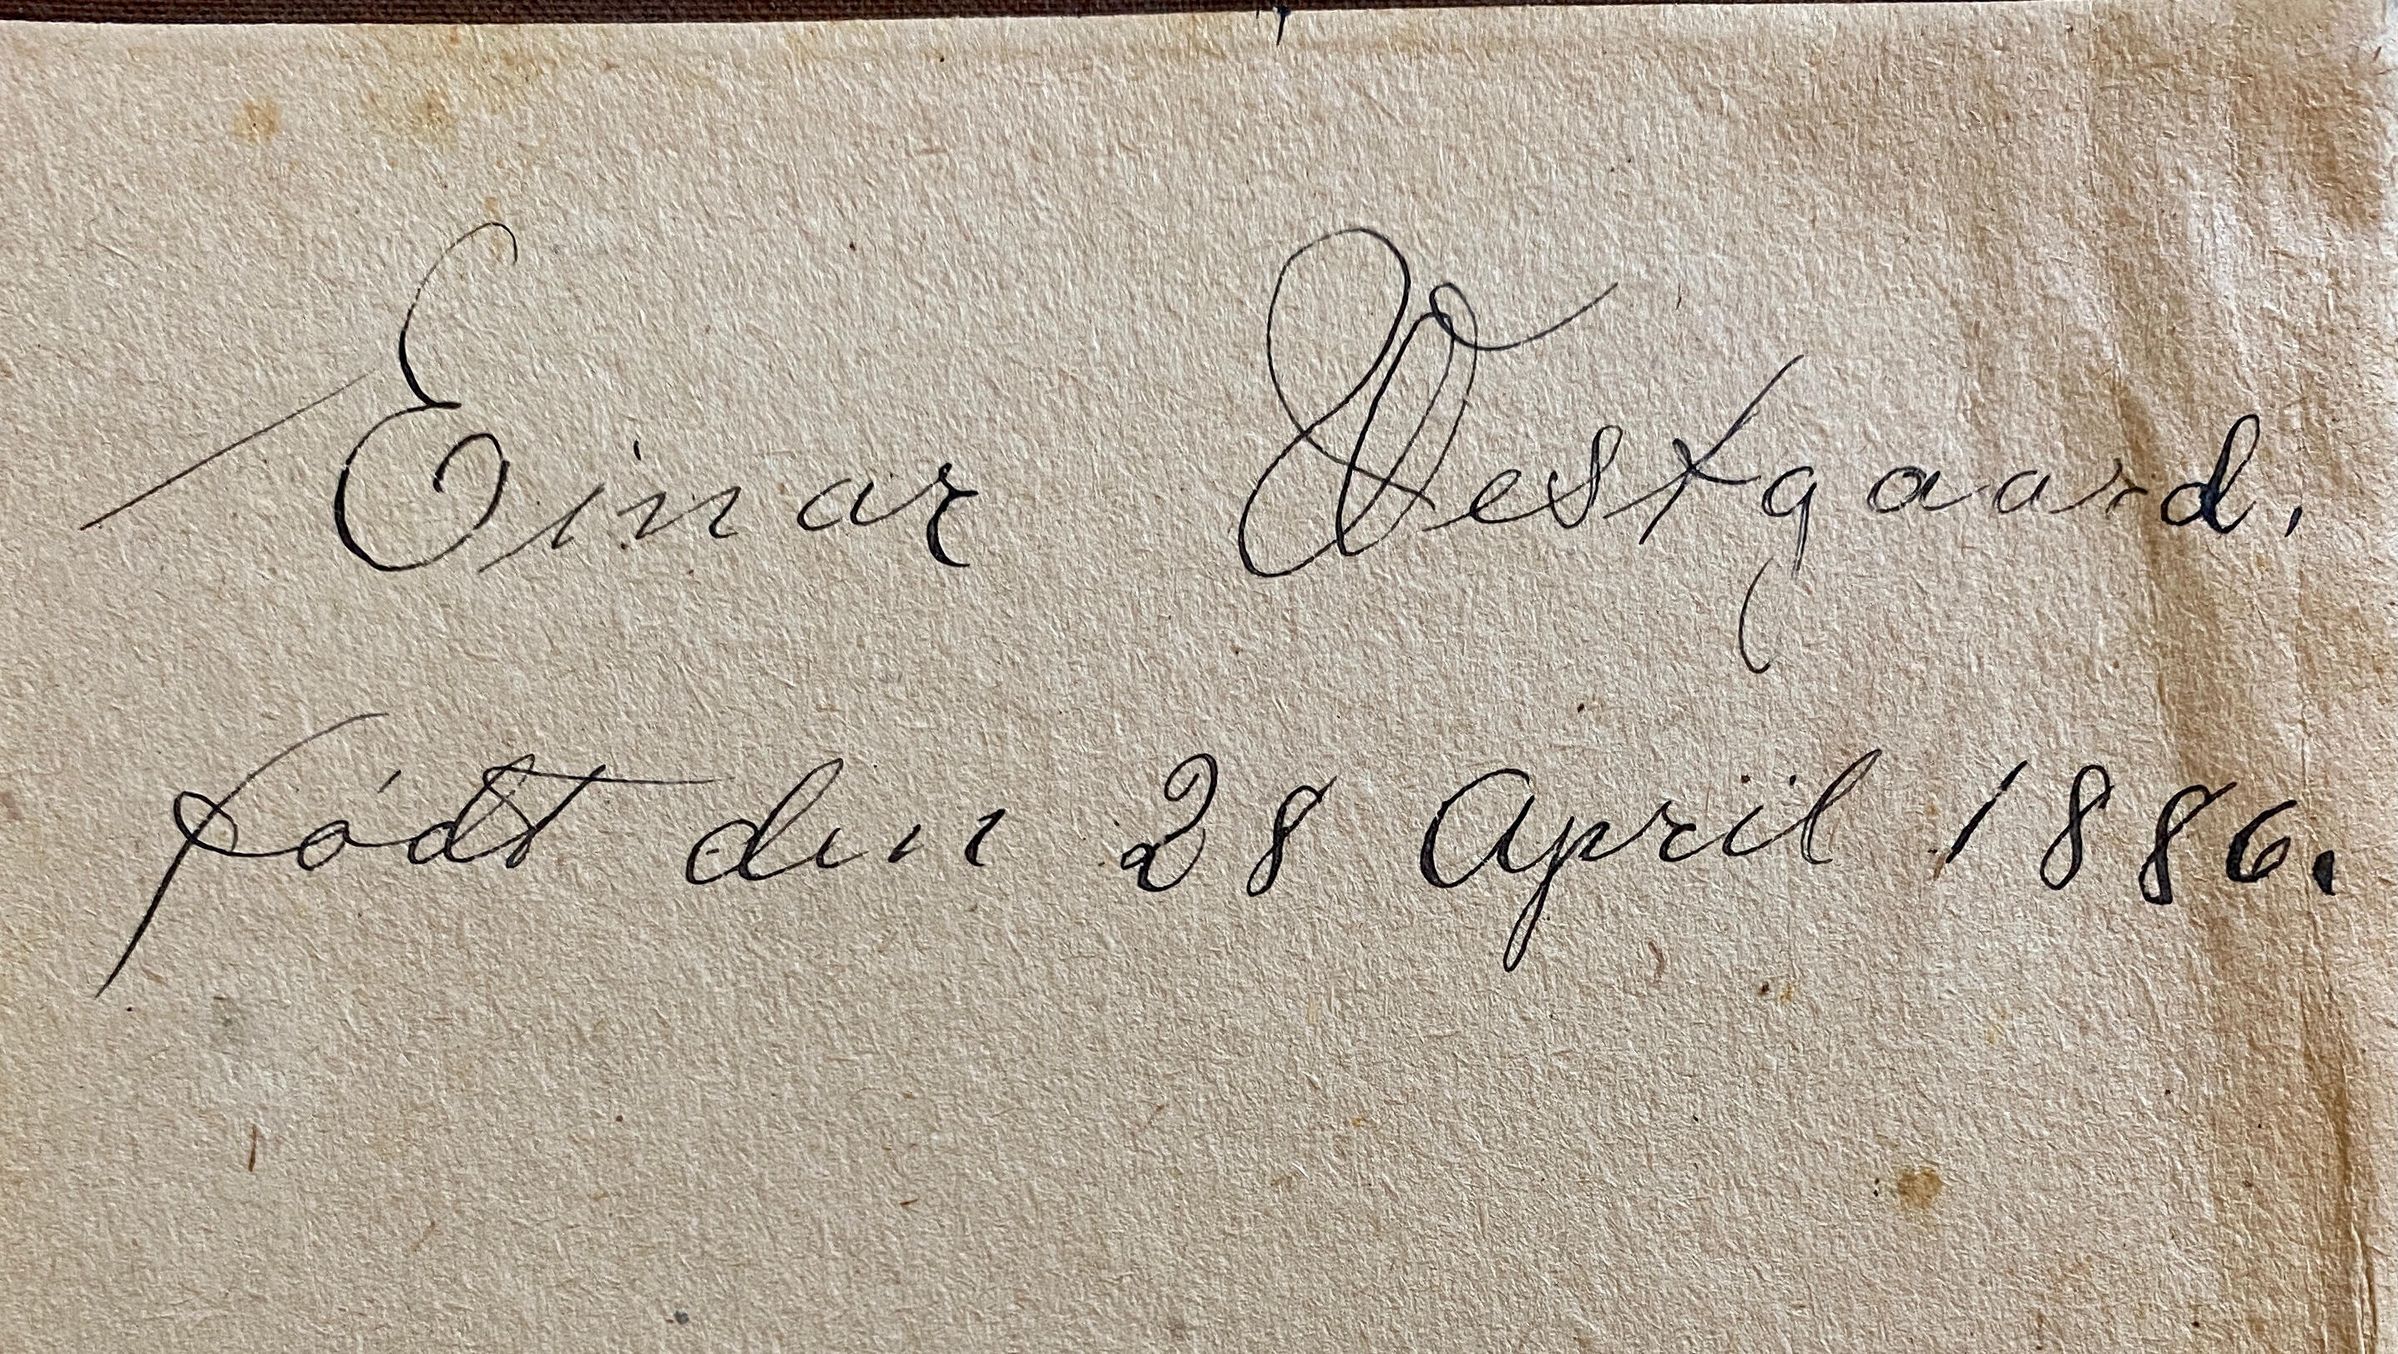 Einar Vestgaard.
født den 28 April 1886.